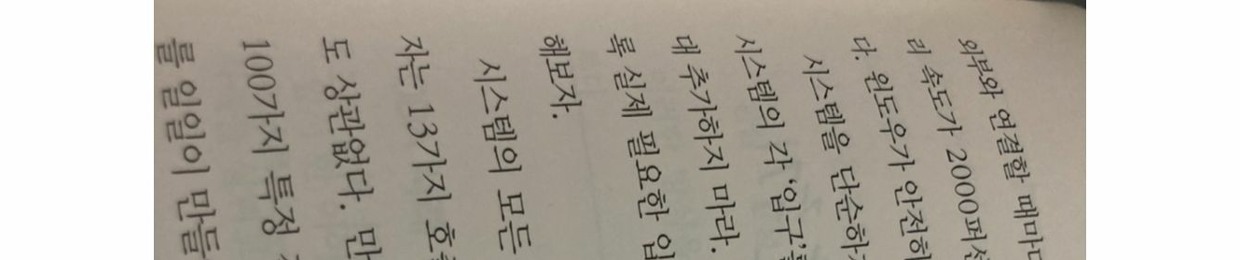 외부와 연결할 때마다
리 속도가 2000퍼센
다. 윈도우가 안전하
시스템을 단순하
시스템의 각 ‘입구’를
대 추가하지 마라.
록 실제 필요한 입
해보자.
시스템의 모든
자는 13가지 호출
도 상관없다. 만
100가지 특정
를 일일이 만들